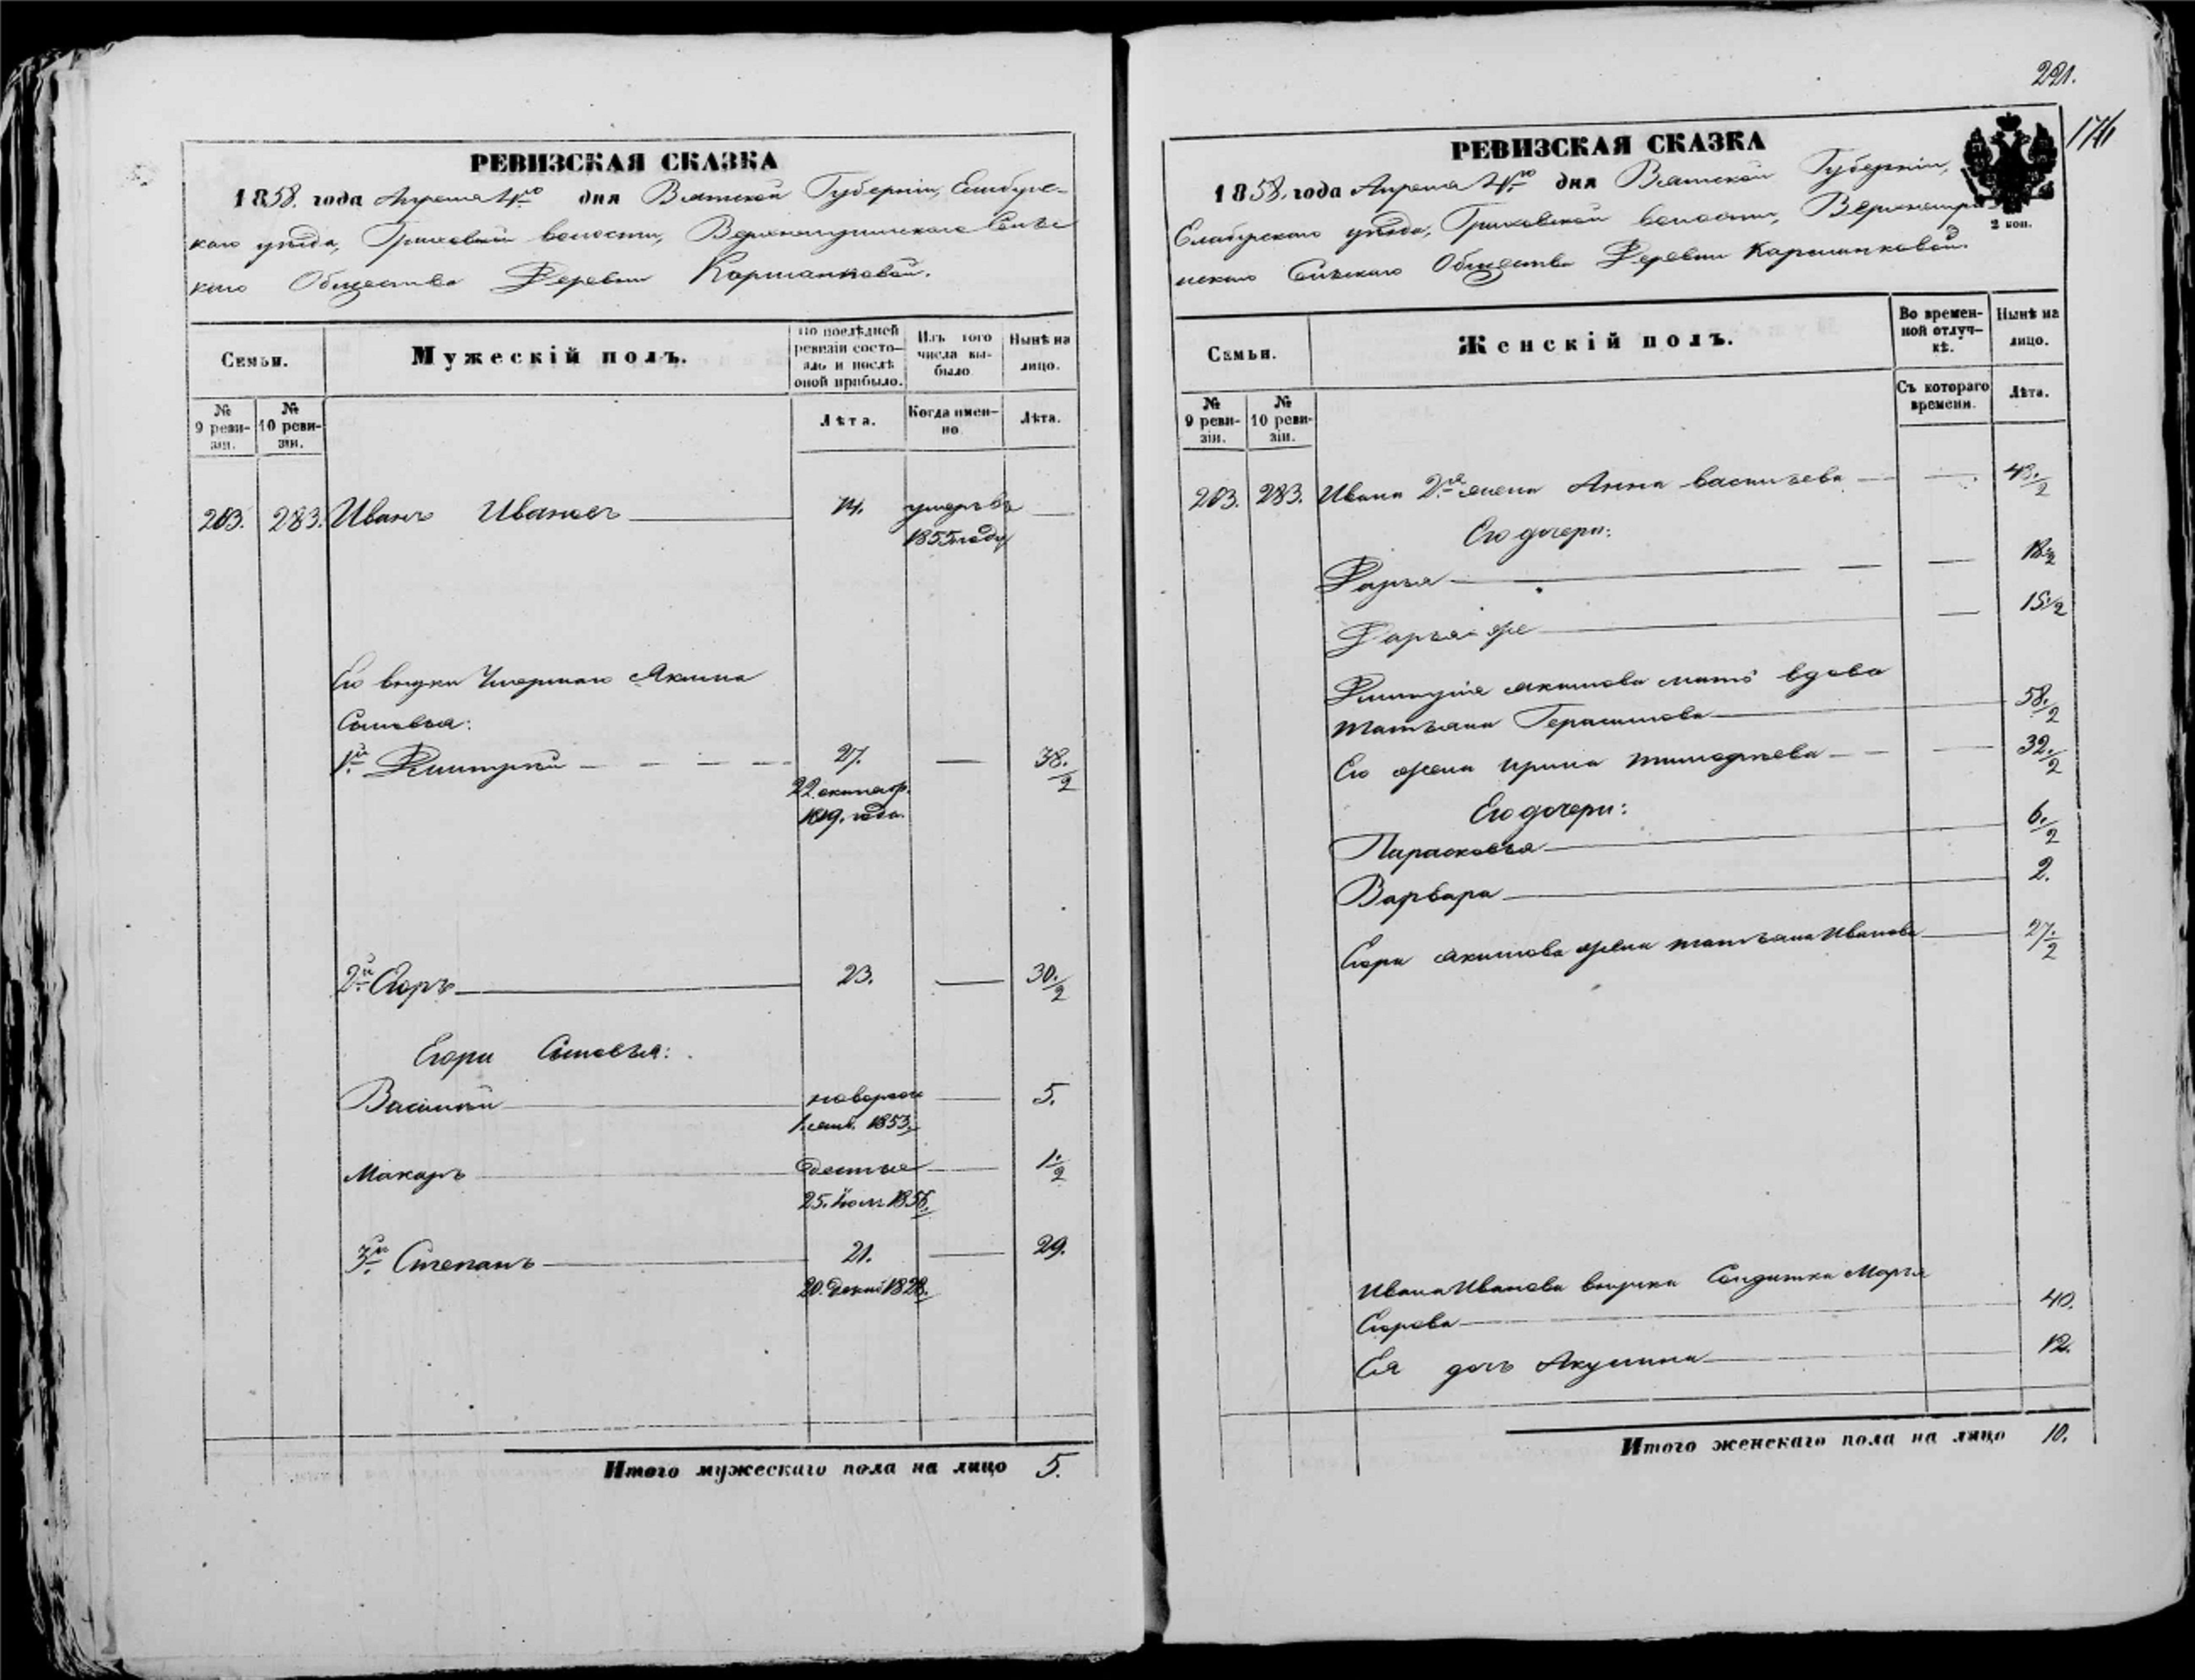 РЕВИЗСКАЯ СКАЗКА
1858. года Апреля дня Вятской Губерніи, Елабугс-
каго уѣзда, волости, Сельс
каго Общества Деревни Каршанковой.
Семьи.
Мужескій полъ.
По послѣдней
ревизіи состо-
яло и послѣ
оной прибыло.
Изъ того
числа вы-
было
Нынѣ на
лицо.
№
9 реви-
зіи.
№
10 реви-
зіи.
Лѣта.
Когда имен-
но.
Лѣта.
203. 283. Иванъ Ивановъ умеръ въ
1855 году
Его внуки Умершаго Акима
Сыновья:
1й Димитрій 27. 38./2
22 октябр.
года.
2й Егоръ 23. 30./2
Егора Сыновья:
Василій новорож 5.
1853.
Макаръ 1./2
25. 1856.
3й Степанъ 21. 29.
20. Декаб 1828.
Итого мужескаго пола на лицо 5.
221.
РЕВИЗСКАЯ СКАЗКА
174
1858. года Апреля дня Вятской Губерніи,
2 коп.
Елабугскаго уѣзда, волости,
Сельскаго Общества Деревни Каршанковой.
Семьи.
Женскій полъ.
Во времен-
ной отлуч-
кѣ.
Нынѣ на
лицо.
№
9 реви-
зіи.
№
10 реви-
зіи.
Съ котораго
времени.
Лѣта.
203. 283. Ивана 2го жена Анна Васильева 43./2
Его дочери:
Дарья 18./2
Дарья же 15./2
Димитрія Акимова мать вдова
Татьяна Герасимова 58./2
Его жена Ирина Тимофѣева 32./2
Его дочери:
Парасковья 6./2
Варвара 2.
Егора Акимова жена Татьяна Иванова 27./2
Ивана Иванова внучка Солдатка Марья
Егорова 40.
Ея дочь Акулина 12.
Итого женскаго пола на лицо 10.